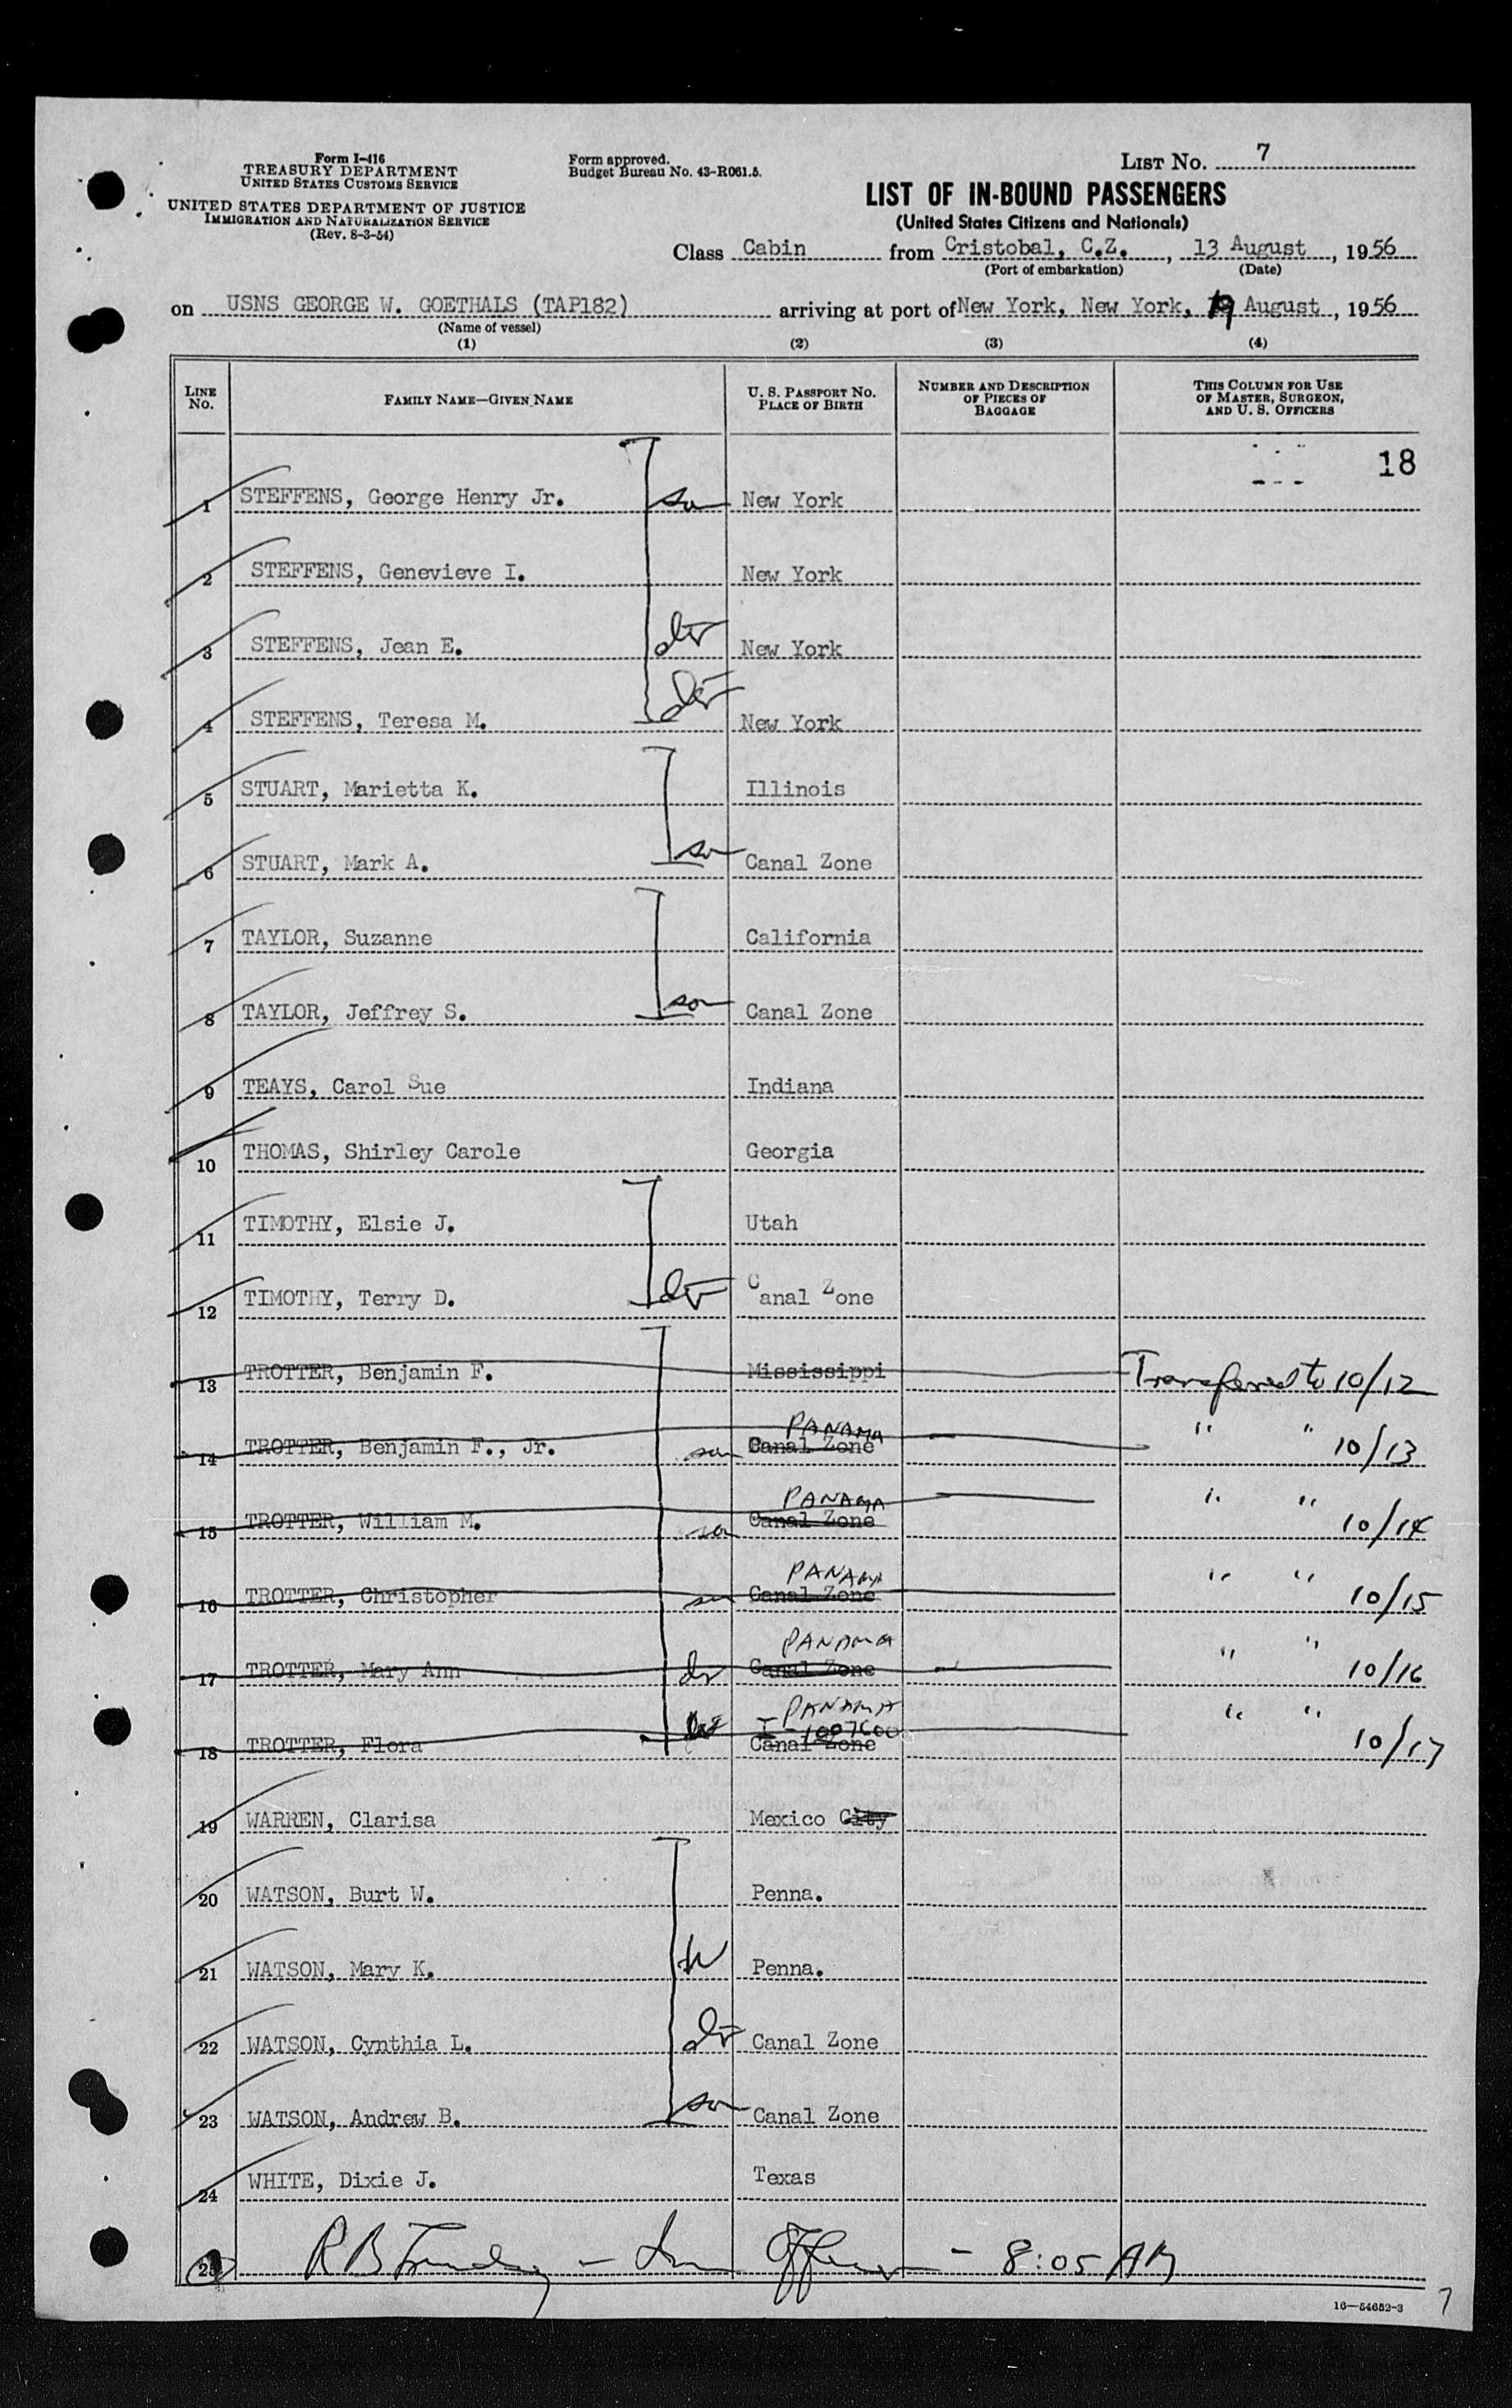 Form I-416
TREASURY DEPARTMENT
UNITED STATES CUSTOMS SERVICE
UNITED STATES DEPARTMENT OF JUSTICE
IMMIGRATION AND NATURALIZATION SERVICE
(Rev. 8-3-54)
Form approved.
Budget Bureau No. 43-R061.5.
LIST NO. 7
LIST OF IN-BOUND PASSENGERS
(United States Citizens and Nationals)
Class Cabin from Cristobal, C.Z., 13 August, 1956
(Port of embarkation) (Date)
on USNS GEORGE W. GOETHALS (TAP182) arriving at port of New York, New York, 19 August, 1956
(Name of vessel)
(1) (2) (3) (4)
LINE NO. FAMILY NAME—GIVEN NAME U. S. PASSPORT NO. PLACE OF BIRTH NUMBER AND DESCRIPTION OF PIECES OF BAGGAGE THIS COLUMN FOR USE OF MASTER, SURGEON, AND U. S. OFFICERS
18
1 STEFFENS, George Henry Jr. son New York
2 STEFFENS, Genevieve I. New York
3 STEFFENS, Jean E. dtr New York
4 STEFFENS, Teresa M. dtr New York
5 STUART, Marietta K. Illinois
6 STUART, Mark A. son Canal Zone
7 TAYLOR, Suzanne California
8 TAYLOR, Jeffrey S. son Canal Zone
9 TEAYS, Carol Sue Indiana
10 THOMAS, Shirley Carole Georgia
11 TIMOTHY, Elsie J. Utah
12 TIMOTHY, Terry D. dtr Canal Zone
13 TROTTER, Benjamin F. Mississippi Transferred to 10/12
14 TROTTER, Benjamin F., Jr. son PANAMA Canal Zone " " 10/13
15 TROTTER, William M. son PANAMA Canal Zone " " 10/14
16 TROTTER, Christopher son PANAMA Canal Zone " " 10/15
17 TROTTER, Mary Ann dr PANAMA Canal Zone " " 10/16
18 TROTTER, Flora PANAMA I-1007600 Canal Zone " " 10/17
19 WARREN, Clarisa Mexico City
20 WATSON, Burt W. Penna.
21 WATSON, Mary K. W Penna.
22 WATSON, Cynthia L. dtr Canal Zone
23 WATSON, Andrew B. son Canal Zone
24 WHITE, Dixie J. Texas
25 R B - Officer - 8:05 AM
16—54652-3 7